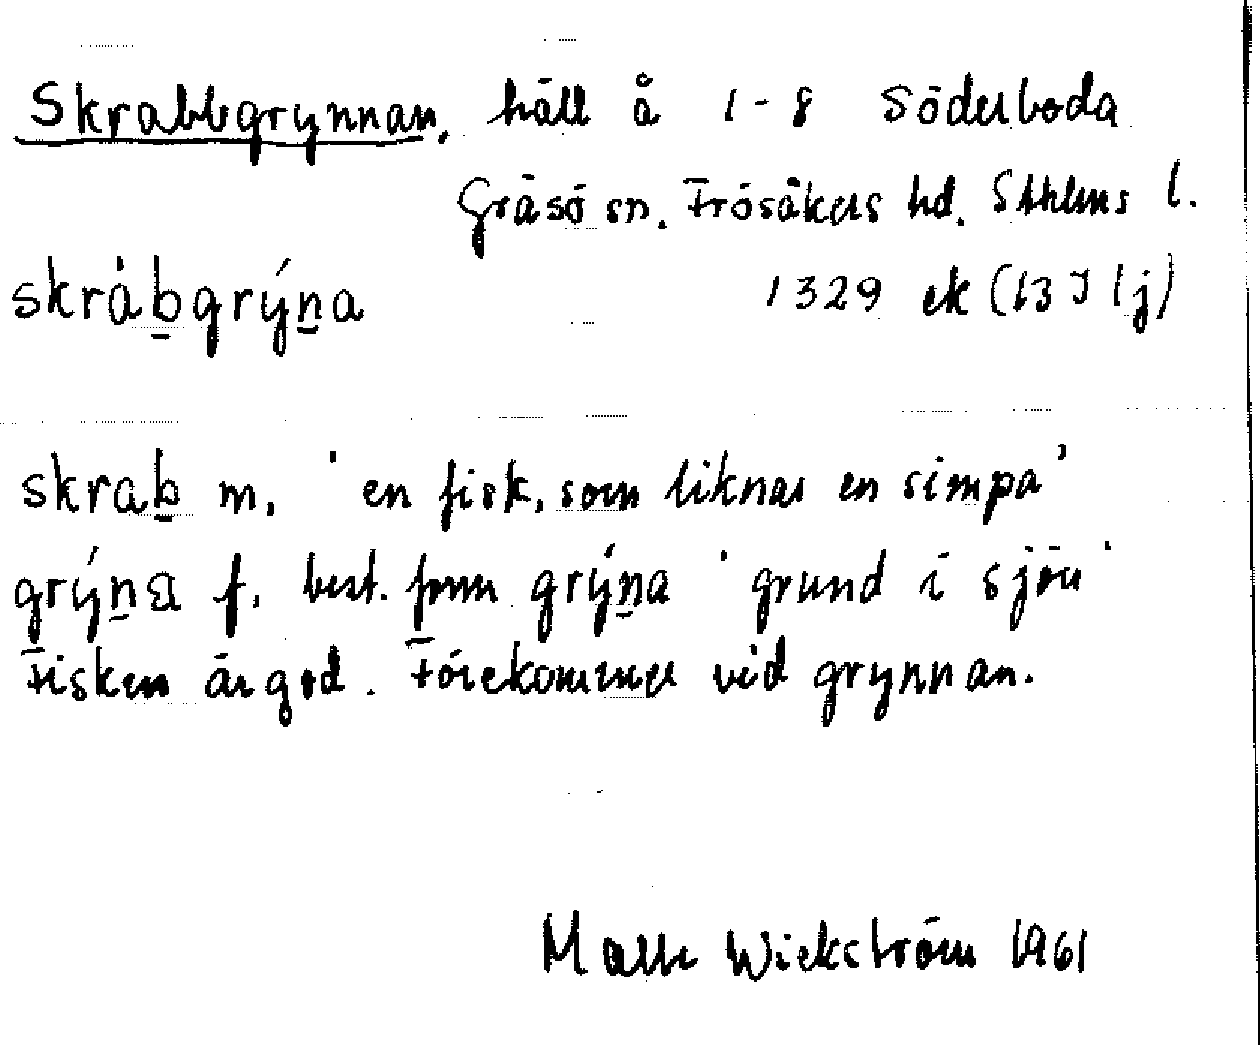 Skrabbgrynnan, häll å 1-8 Söderboda
Gräsö sn. Frösåkers hd. Sthlms l.
skràb̲grýn̲a 1329 ek (13 I 1j)
skrab̲ m, ' en fisk, som liknar en simpa '
grýn̲a f. best. form grýn̲a ' grund i sjön '
Fisken är god. Förekommer vid grynnan.
Malle Wickström 1961